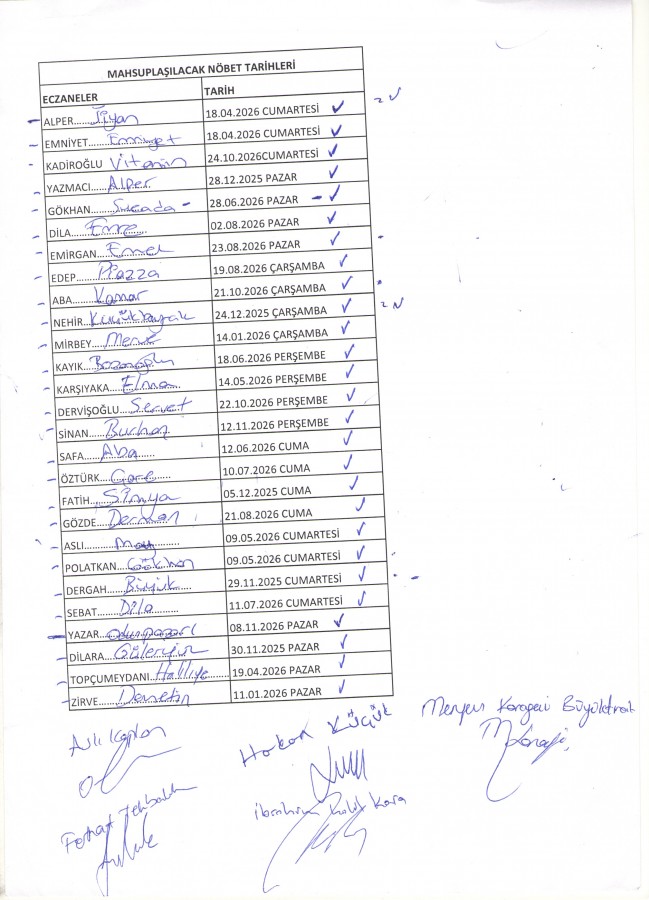 MAHSUPLAŞILACAK NÖBET TARİHLERİ
ECZANELER TARİH
ALPER...... 18.04.2026 CUMARTESİ ✓ 2 ✓
EMNİYET...... Emniyet 18.04.2026 CUMARTESİ ✓
KADİROĞLU Vitamin 24.10.2026CUMARTESİ ✓
YAZMACI...... Alper 28.12.2025 PAZAR ✓
GÖKHAN...... 28.06.2026 PAZAR - ✓
DİLA...... Emre 02.08.2026 PAZAR ✓
EMİRGAN...... Emek 23.08.2026 PAZAR ✓
EDEP...... Piazza 19.08.2026 ÇARŞAMBA ✓
ABA...... 21.10.2026 ÇARŞAMBA ✓
NEHİR... 24.12.2025 ÇARŞAMBA ✓ 2
MİRBEY...... Merve 14.01.2026 ÇARŞAMBA ✓
KAYIK...... 18.06.2026 PERŞEMBE ✓
KARŞIYAKA... Elma 14.05.2026 PERŞEMBE ✓
DERVİŞOĞLU... Servet 22.10.2026 PERŞEMBE ✓
SİNAN...... Burhan 12.11.2026 PERŞEMBE ✓
SAFA...... Aba 12.06.2026 CUMA ✓
ÖZTÜRK...... 10.07.2026 CUMA ✓
FATİH... Simya 05.12.2025 CUMA ✓
GÖZDE...... Derman 21.08.2026 CUMA ✓
ASLI...... 09.05.2026 CUMARTESİ ✓
POLATKAN... Gökhan 09.05.2026 CUMARTESİ ✓
DERGAH...... Büyük 29.11.2025 CUMARTESİ ✓
SEBAT...... Dila 11.07.2026 CUMARTESİ ✓
YAZAR... odunpazarı 08.11.2026 PAZAR ✓
DİLARA...... Güleryüz 30.11.2025 PAZAR ✓
TOPÇUMEYDANI Halliye 19.04.2026 PAZAR ✓
ZİRVE...... Demetin 11.01.2026 PAZAR ✓
Aslı Kaplan Hakan KÜÇÜK Meryem
Ferhat İbrahim Kara